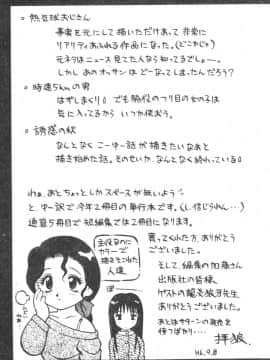 ○ 熱気球おじさん
事実を元にして描いただけあって 非常に
リアリティあふれる作品になった。(どこがじゃ)
元ネタはニュース見てた人なら知ってるでしょー。
しかし あのオッサンは どーなってしまったんだろう?
○ 時速5kmの男
はずしまくり でも脇役のつり目の女の子は
気に入ってるから いつか使おう。
○ 誘惑の秋
なんとなく こーゆー話が描きたいなあと
描き始めた話。そのせいか、なんとなく終わっている
わぁ、あと ちょっとしかスペースが無いよう
と、ゆー訳で 今年2冊目の単行本です。(し、信じられん…)
通算5冊目で 短編集では2冊目になります。
買ってくれた方、ありがとう
ございました。
そして、編集の加藤さん
出版社の皆様、
ゲストの
先生
ありがとうございました。
あとはサターンの発売を
待つばかり…
主役なのに
カラーで
描きそこねた
人達
ぽ
拝狼